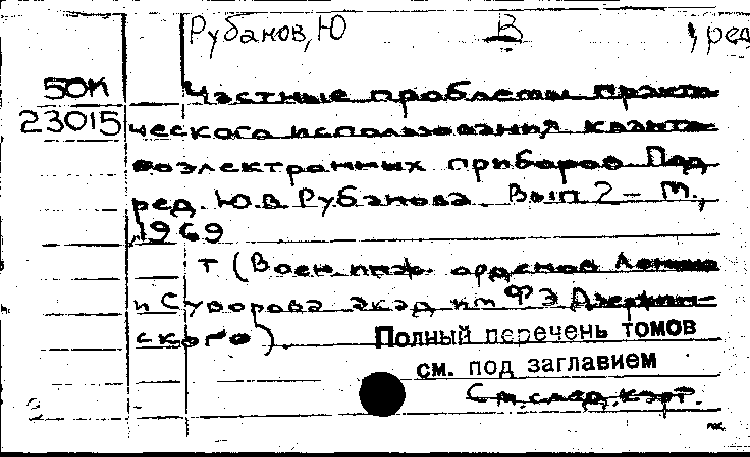 Рубанов, Ю В , ред
50К Частные проблемы практи
23015 ческого использования кванто
воэлектронных приборов Под
ред. Ю.В. Рубанова. Вып 2 – М.,
1969
т (Воен. инж. орденов Ленина
и Суворова акад им Ф Э Дзержин-
ского).
Полный перечень томов
см. под заглавием
См. след. карт.